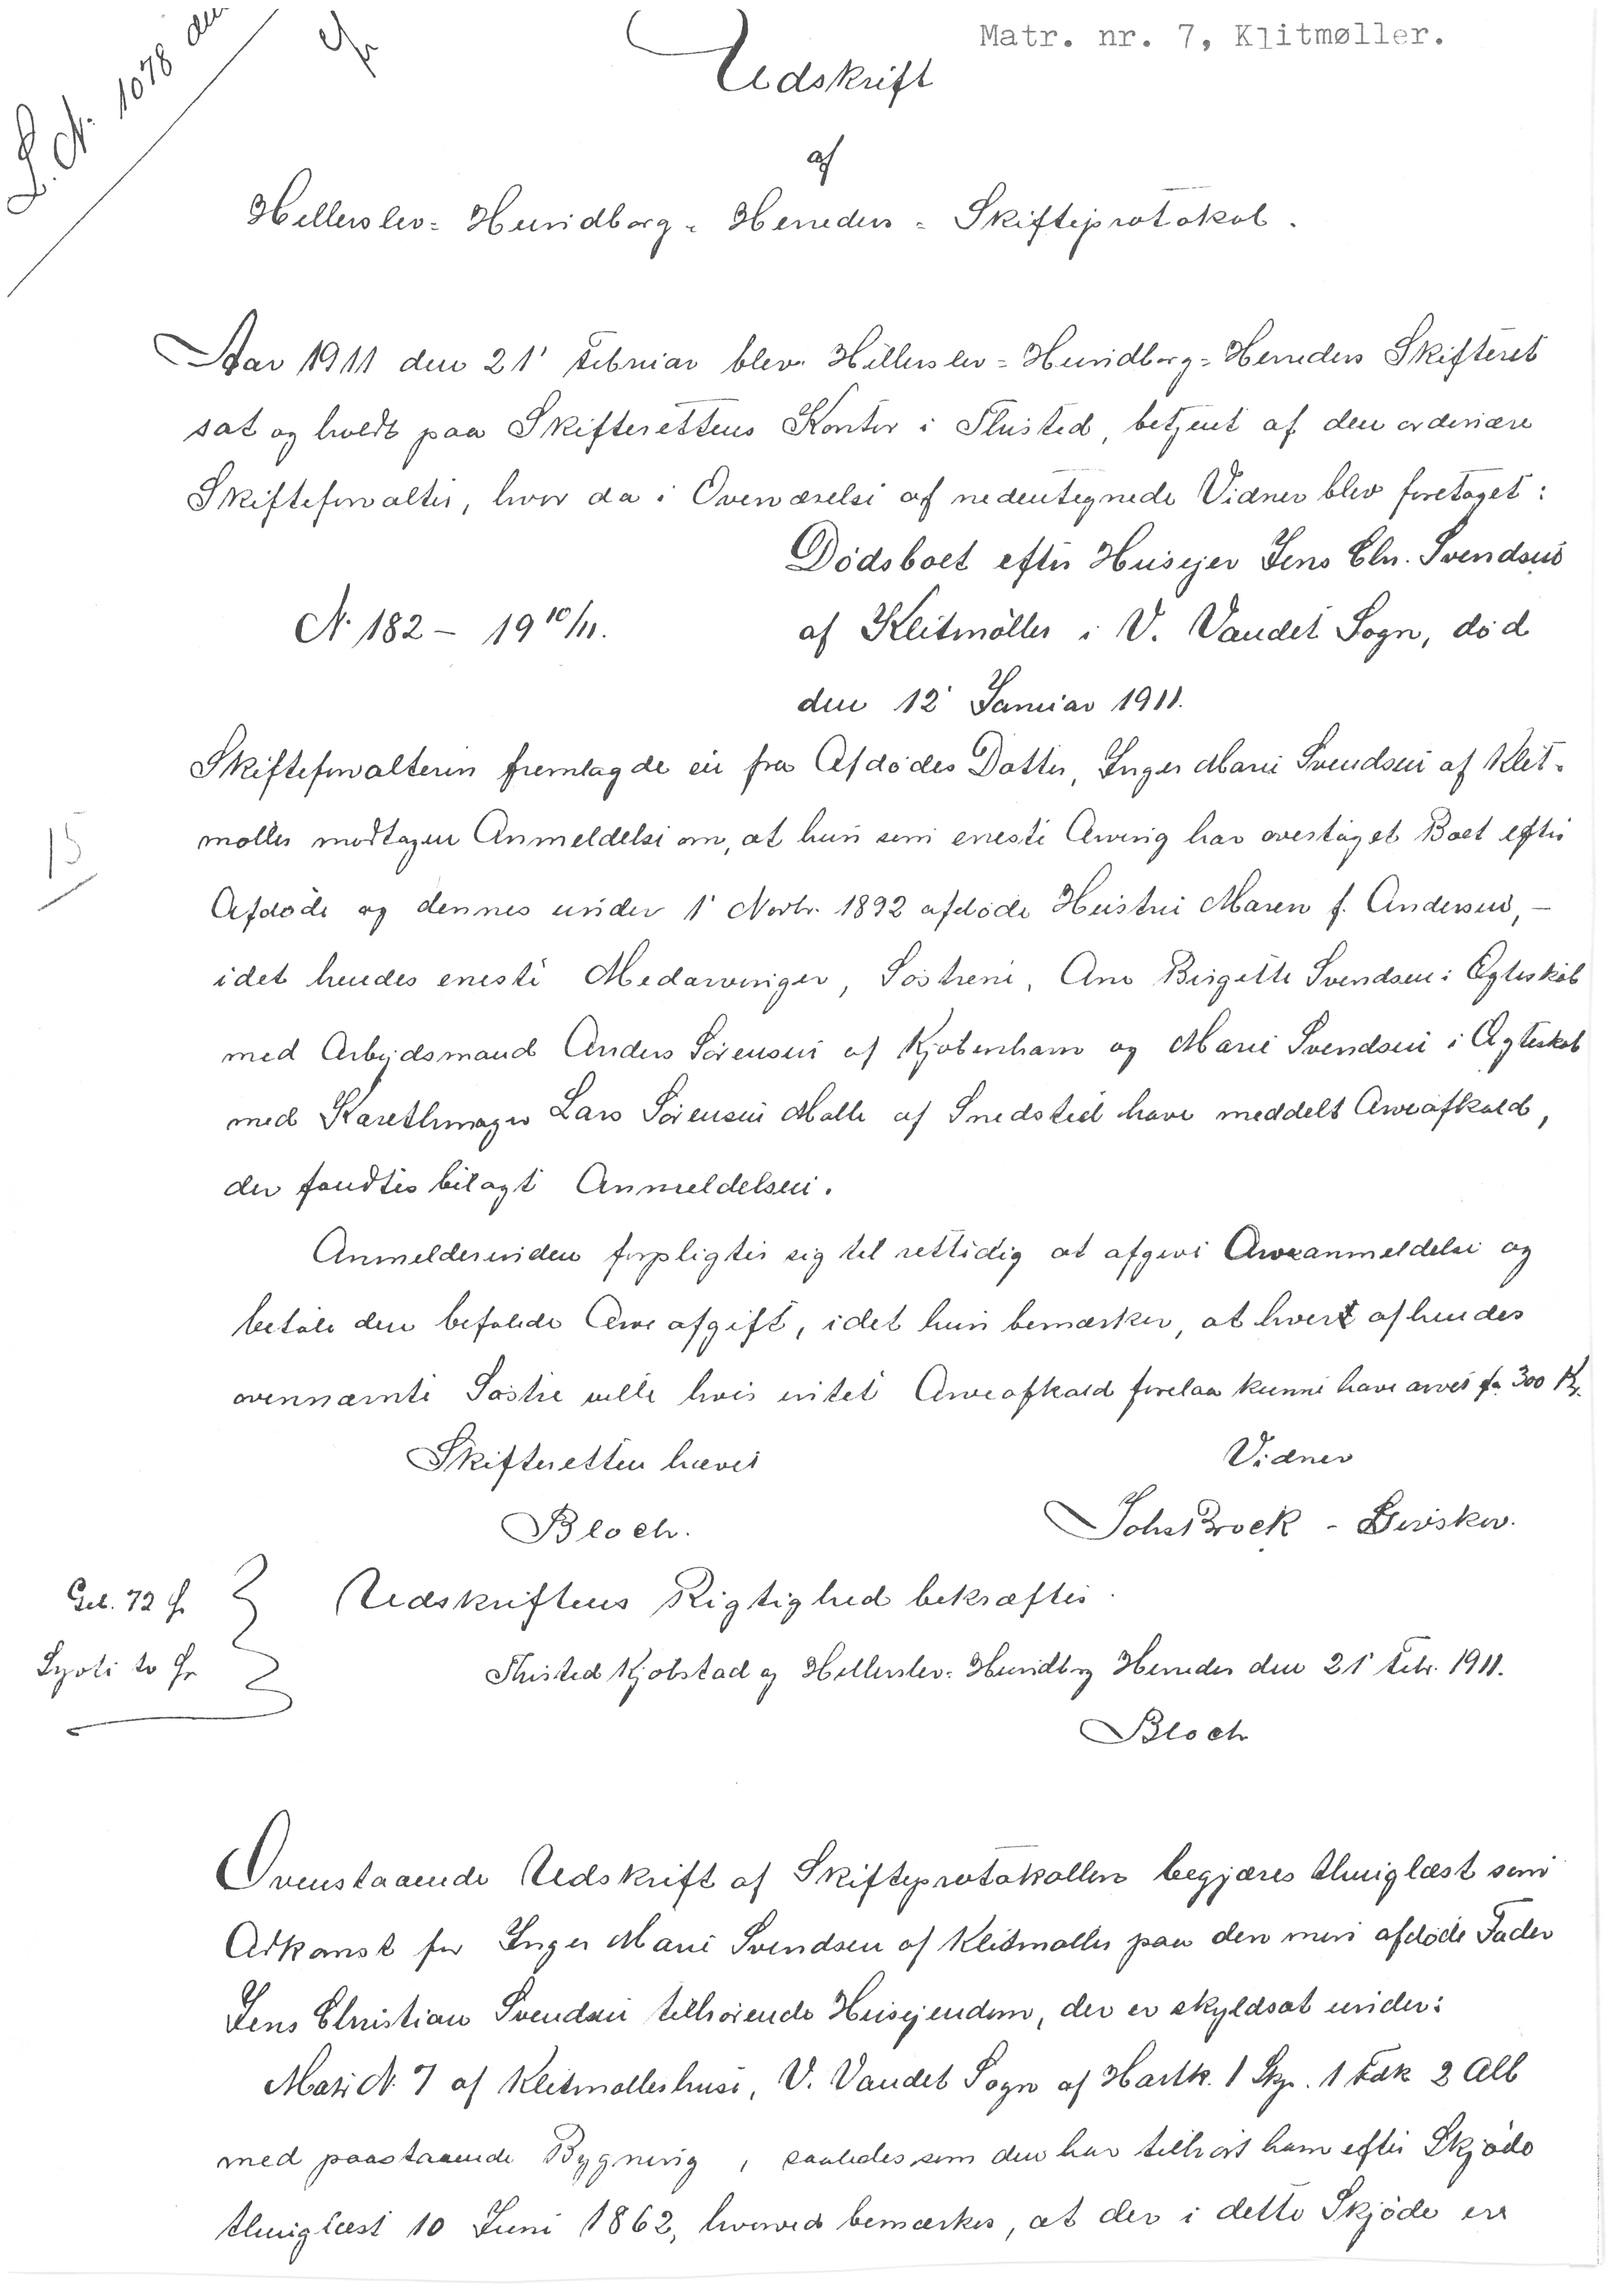 Matr. nr. 7, Klitmøller.
L. N. 1078 den
Udskrift
af
Hillerslev-Hundborg-Herreders-Skifteprotokol.
Aar 1911 den 21' Februar blev Hillerslev-Hundborg-Herreders Skifteret
sat og holdt paa Skifterettens Kontor i Thisted, betjent af den ordinære
Skifteforvalter, hvor da i Overværelse af nedentegnede Vidner blev foretaget:
Dødsboet efter Husejer Jens Chr. Svendsen
N. 182 - 19 10/11.
af Klitmøller i V. Vandet Sogn, død
den 12' Januar 1911.
Skifteforvalteren fremlagde en fra Afdødes Datter, Inger Marie Svendsen af Klit-
møller modtagen Anmeldelse om, at hun som eneste Arving har overtaget Boet efter
15
Afdøde og dennes under 1' Novbr. 1892 afdøde Hustru Maren f. Andersen, —
idet hendes eneste Medarvinger, Søstrene, Ane Birgitte Svendsen i Ægteskab
med Arbejdsmand Anders Sørensen af Kjøbenhavn og Marie Svendsen i Ægteskab
med Karethmager Lars Sørensen Malle af Snedsted have meddelt Arveafkald,
der fandtes bilagt Anmeldelsen.
Anmelderinden forpligter sig til rettidig at afgive Arveanmeldelse og
betale den befalede Arveafgift, idet hun bemærker, at hvert af hendes
ovennævnte Søstre ville hvis intet Arveafkald forelaa kunne have arvet ca. 300 Kr.
Skifteretten hævet
Vidner
Bloch.
Johs Brock - Driisker.
Geb. 72 Ør
Udskriftens Rigtighed bekræftes.
Thisted Kjøbstad og Hillerslev-Hundborg Herreder den 21' Febr. 1911.
Bloch
Ovenstaaende Udskrift af Skifteprotokollen begjæres thinglæst som
Adkomst for Inger Marie Svendsen af Klitmøller paa den min afdøde Fader
Jens Christian Svendsen tilhørende Husejendom, der er skyldsat under:
Matr. N. 7 af Klitmøllerhuse, V. Vandet Sogn af Hartk. 1 Skp. 1 Fdk 2 Alb
med paastaaende Bygning, saaledes som den har tilhørt ham efter Skjøde
thinglæst 10 Juni 1862, hvorved bemærkes, at der i dette Skjøde er